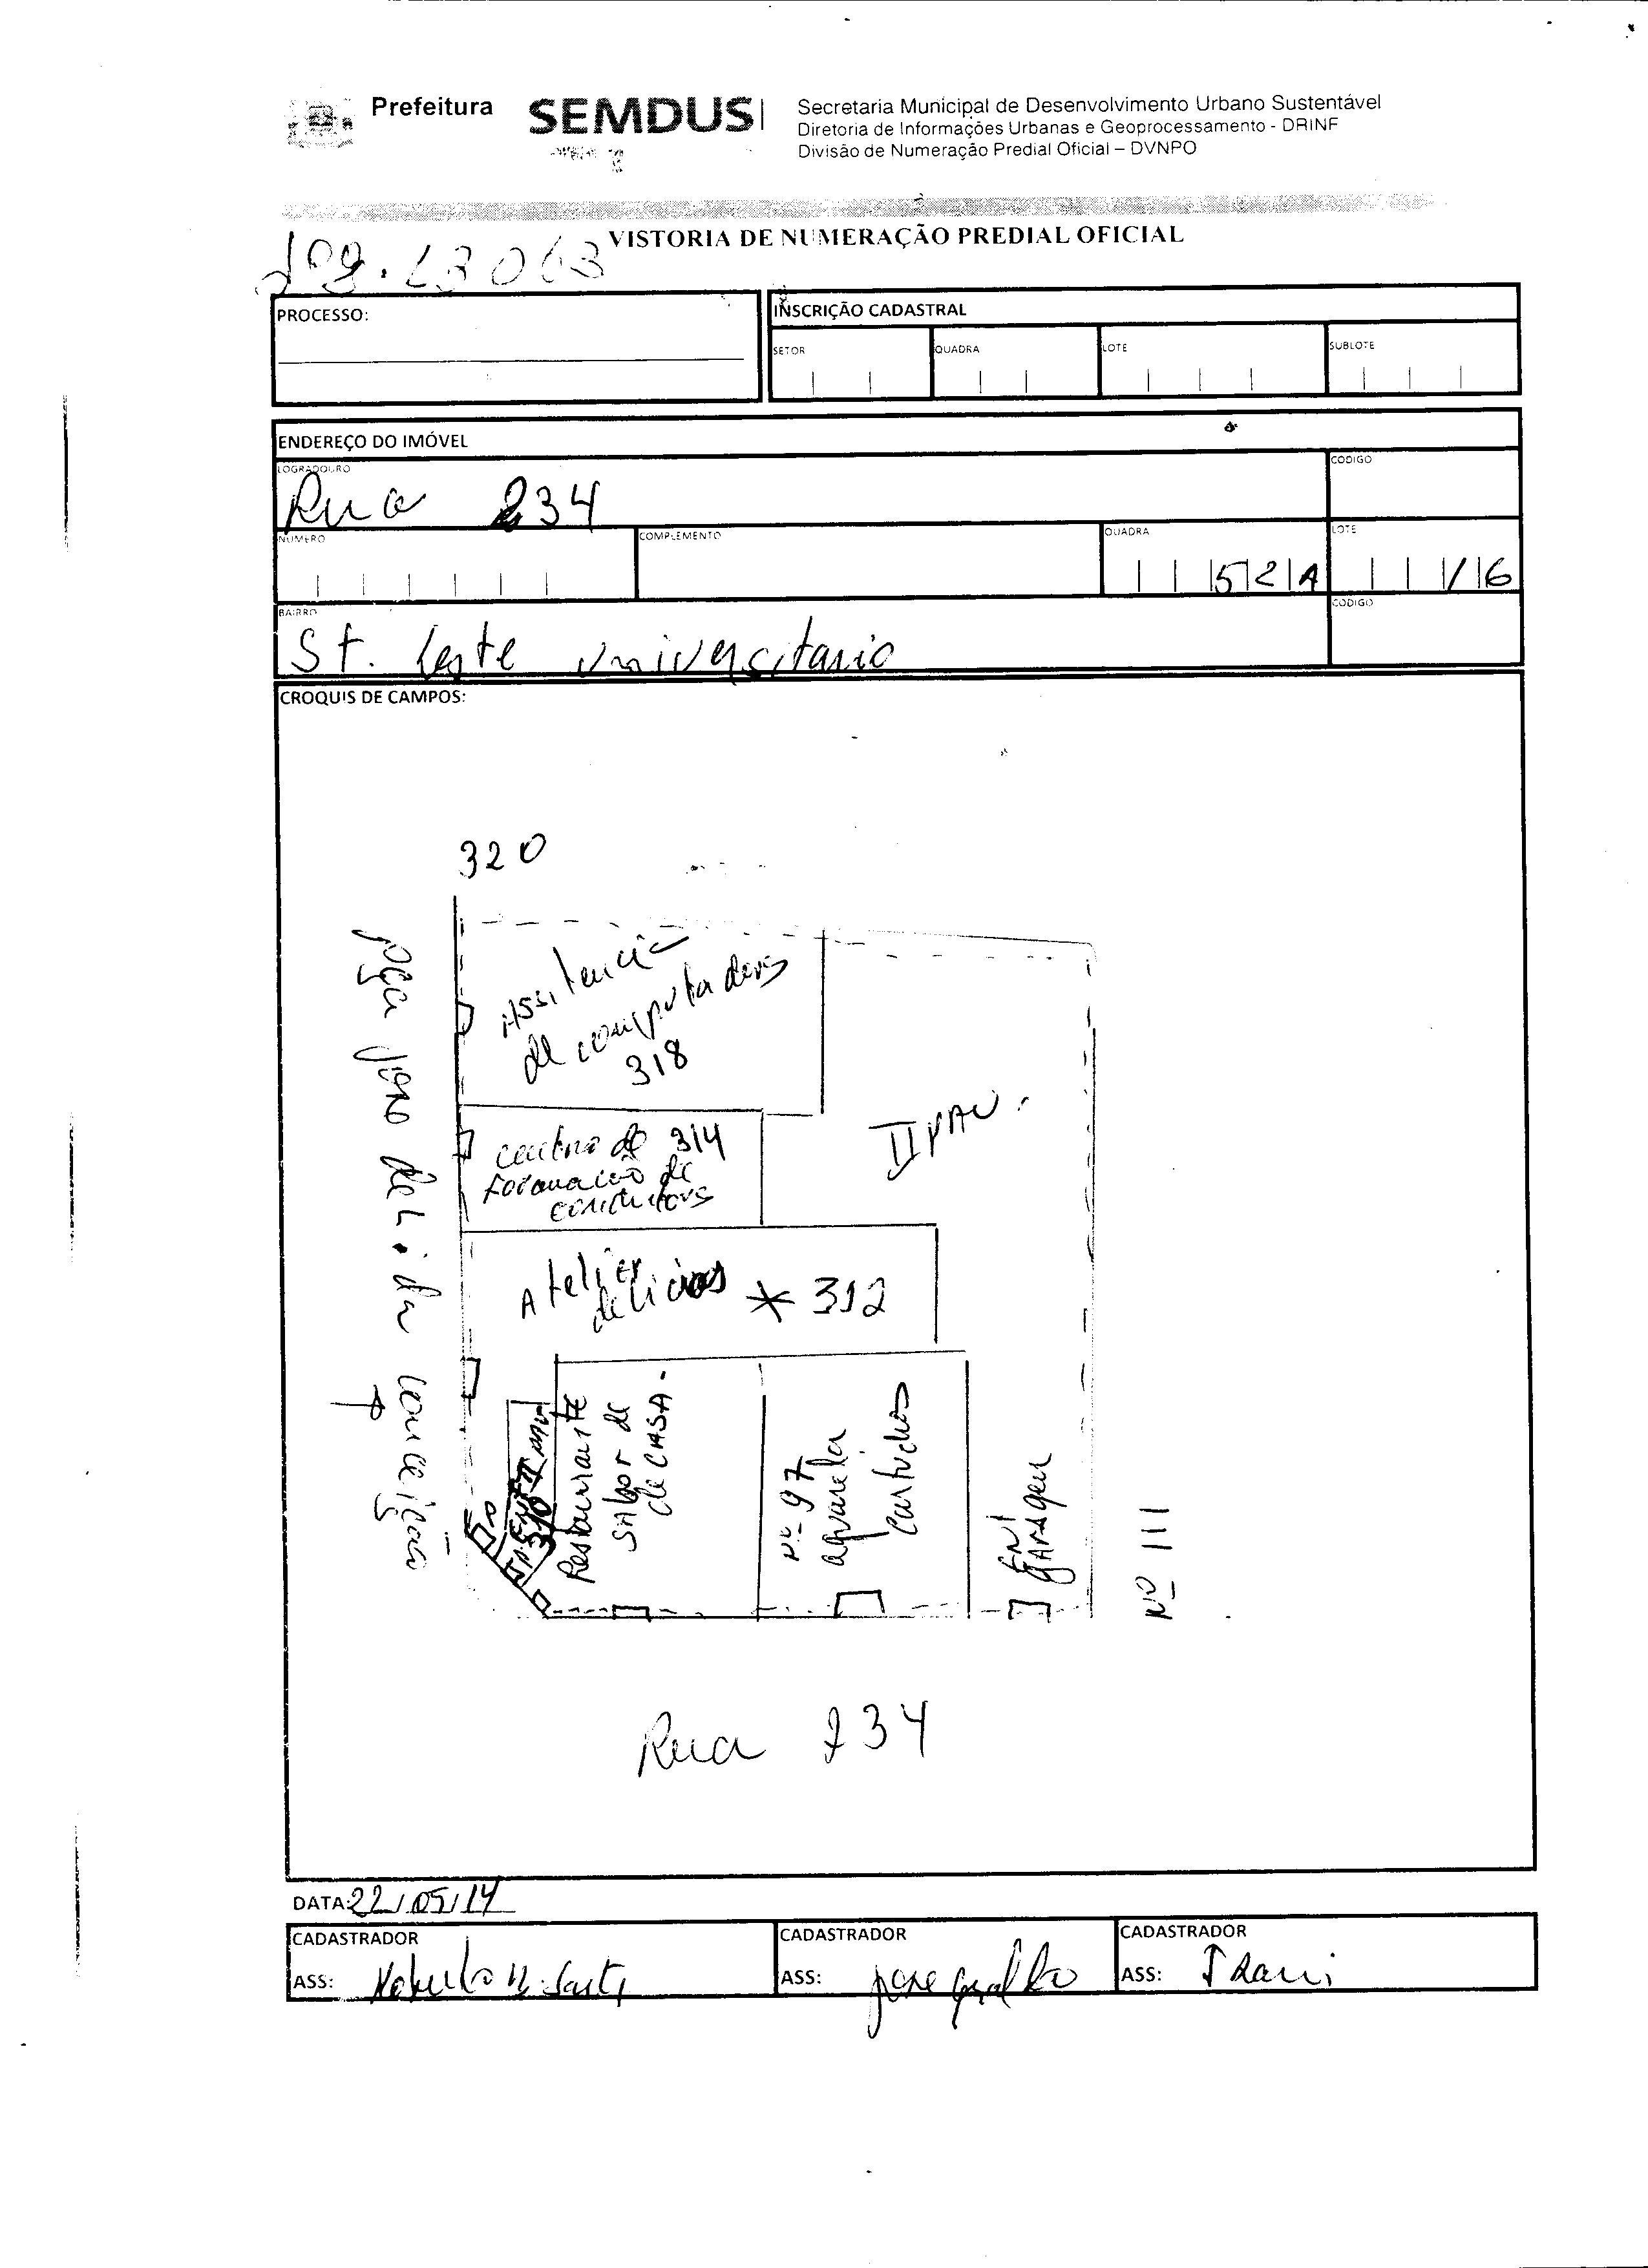 Prefeitura
SEMDUS
Secretaria Municipal de Desenvolvimento Urbano Sustentável
Diretoria de Informações Urbanas e Geoprocessamento - DRINF
Divisão de Numeração Predial Oficial – DVNPO
VISTORIA DE NUMERAÇÃO PREDIAL OFICIAL
PROCESSO:
INSCRIÇÃO CADASTRAL
SETOR QUADRA LOTE SUBLOTE
ENDEREÇO DO IMÓVEL
LOGRADOURO CODIGO
Rua 234
NÚMERO COMPLEMENTO QUADRA LOTE
52A /16
BAIRRO CODIGO
St. Leste universitario
CROQUIS DE CAMPOS:
320
Assitencia
de computadores
318
II PAV.
centro de 314
Formacao de
condutores
Atelier
delicias * 312
310
Restaurante
SAbor de
de CASA-
Nº 97
aquarela
Cartuchos
GARAgeu
Nº 111
Rua 234
DATA: 22/05/14
CADASTRADOR CADASTRADOR CADASTRADOR
ASS: ASS: jose Geraldo ASS: Irani